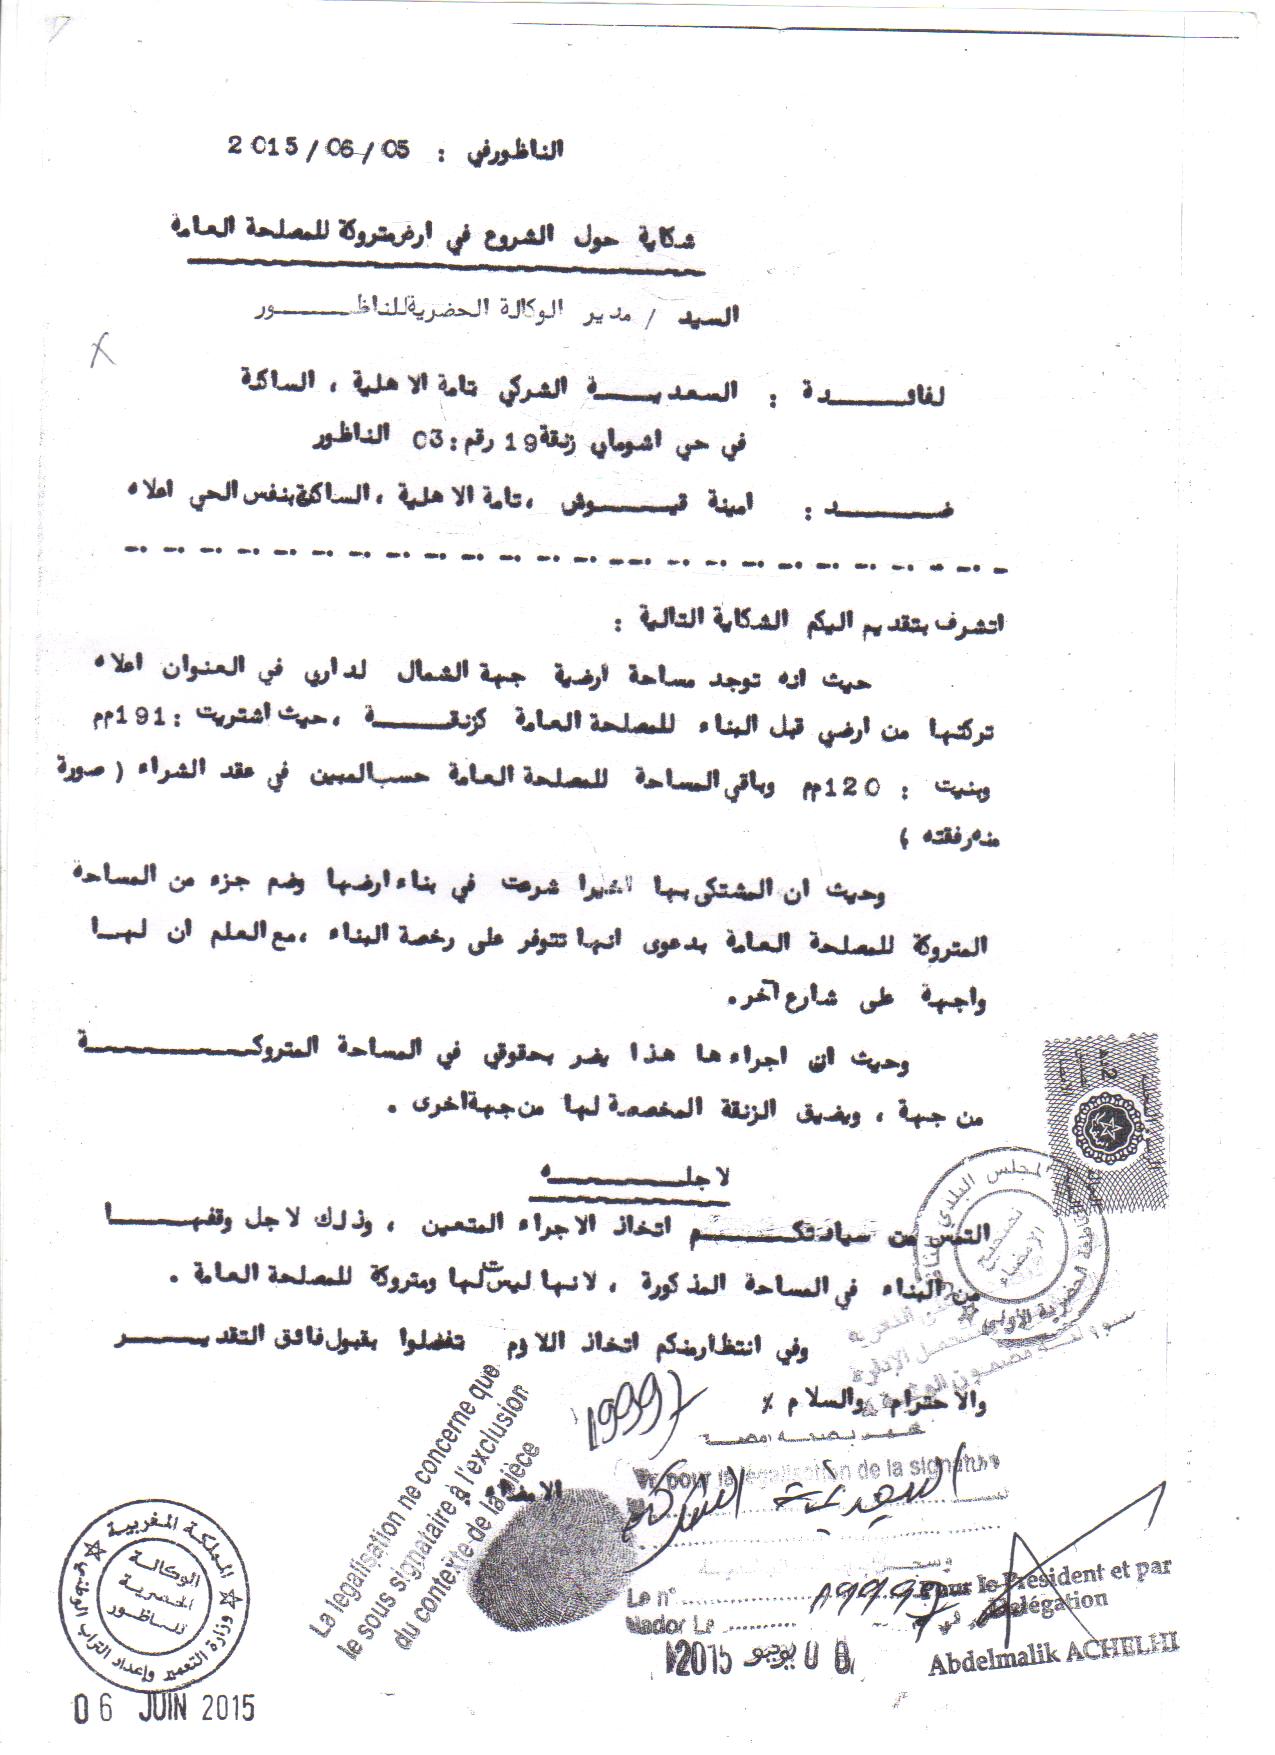 الناظور في : 2015/06/05
شكاية حول الشروع في ارض متروكة للمصلحة العامة
السيد / مدير الوكالة الحضرية للناظـــــور
لفائـــــدة : السعديـــة الشركي تامة الاهلية ، الساكنة
في حي اشوماي زنقة 19 رقم : 03 الناظور
ضـــــد : امينة قيـــــوش ، تامة الاهلية ، الساكنة بنفس الحي اعلاه
اتشرف بتقديم اليكم الشكاية التالية :
حيث انه توجد مساحة ارضية جهة الشمال لداري في العنوان اعلاه
تركتها من ارضي قبل البناء للمصلحة العامة كزنقـــــة ، حيث اشتريت : 191 مم
وبنيت : 120 مم وباقي المساحة للمصلحة العامة حسب المبين في عقد الشراء ( صورة
منه رفقته )
وحيث ان المشتكى بها شرعت في بناء ارضها وضم جزء من المساحة
المتروكة للمصلحة العامة بدعوى انها تتوفر على رخصة البناء ، مع العلم ان لهـــا
واجهة على شارع آخر .
وحيث ان اجراءها هذا يضر بحقوقي في المساحة المتروكـــــة
من جهة ، ويضيق الزنقة المخصصة لها من جهة اخرى .
لاجلـــــه
التمس من سيادتكـــــم اتخاذ الاجراء المتعين ، وذلك لاجل وقفهـــــا
من البناء في المساحة المذكورة ، لانها ليست لها ومتروكة للمصلحة العامة .
وفي انتظار منكم اتخاذ اللازم تفضلوا بقبول فائق التقديـــــر
والاحترام والسلام ٪
19997
الامضاء :
السعدية الشركي
La legalisation ne concerne que
le sous signataire à l'exclusion
du contexte de la pièce
Vu pour la légalisation de la signature
Le n° 19997
Nador Le
08 يونيو 2015
Pour le Président et par
Délégation
Abdelmalik ACHELHI
المملكة المغربية
وزارة التعمير وإعداد التراب الوطني
الوكالة
الحضرية
للناظور
06 JUIN 2015